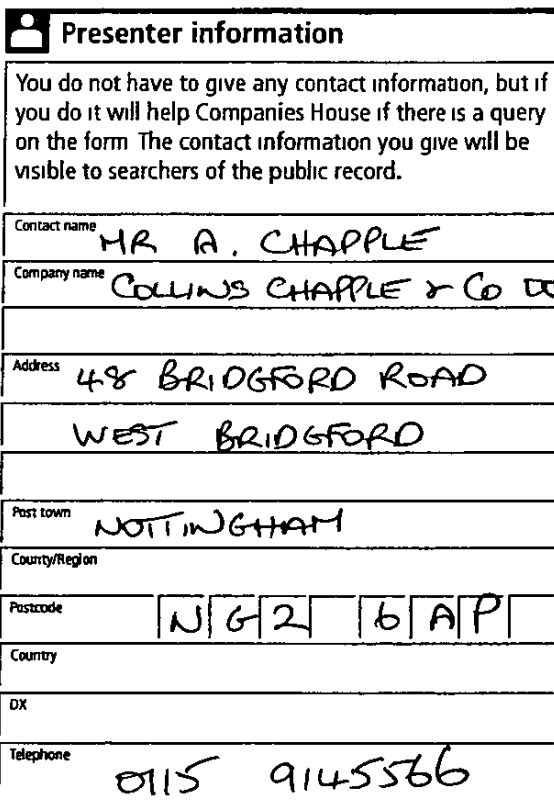 Presenter information
You do not have to give any contact information, but if
you do it will help Companies House if there is a query
on the form The contact information you give will be
visible to searchers of the public record.
Contact name MR A. CHAPPLE
Company name COLLINS CHAPPLE & CO
Address 48 BRIDGFORD ROAD
WEST BRIDGFORD
Post town NOTTINGHAM
County/Region
Postcode NG2 6AP
Country
DX
Telephone 0115 9145566